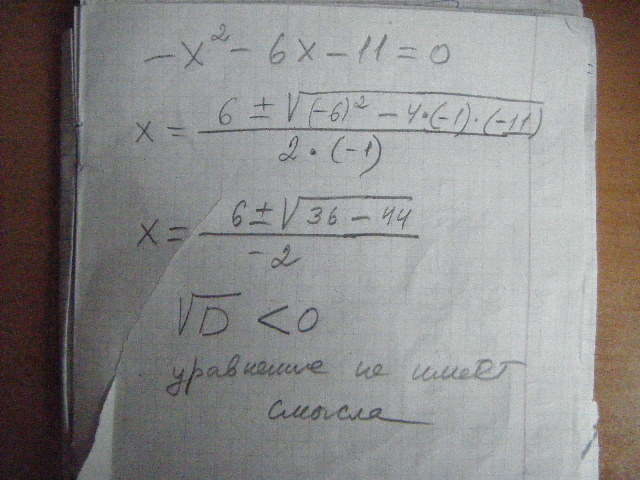 -x² - 6x - 11 = 0
x = (6 ± √((-6)² - 4·(-1)·(-11))) / (2·(-1))
x = (6 ± √(36 - 44)) / (-2)
√D < 0
уравнение не имеет
смысла